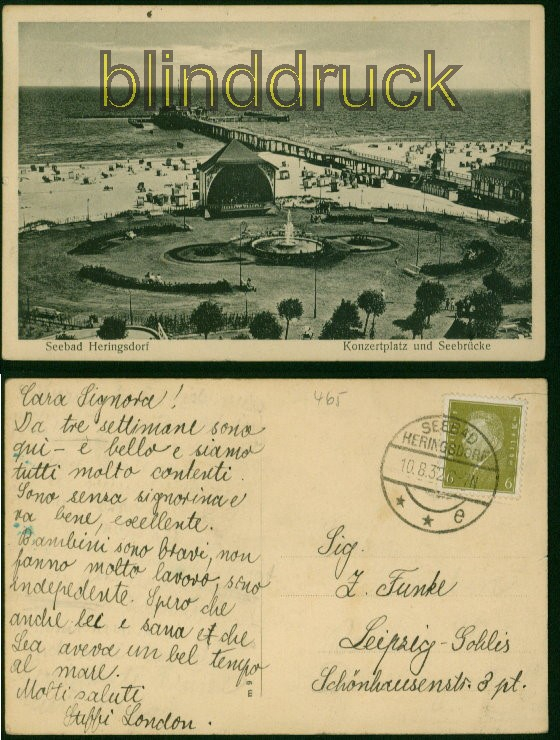 blinddruck
Seebad Heringsdorf
Konzertplatz und Seebrücke
Cara Signora!
Da tre settimane sono
qui - è bello e siamo
tutti molto contenti.
Sono senza signorina e
va bene, excellente.
Bambini sono bravi, non
fanno molto lavoro, sino
indepedente. Spero che
anche lei e sana et che
Lea aveva un bel tempo
al mare.
Molti saluti
Steffi London.
465
SEEBAD
HERINGSDORF
10.8.32
* * e
6 6
Sig.
Z. Funke
Leipzig-Gohlis
Schönhausenstr. 3 pt.